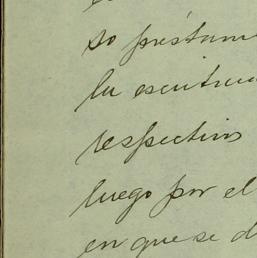 so préstamo
la escritura
respectiva
luego por el
en que se d